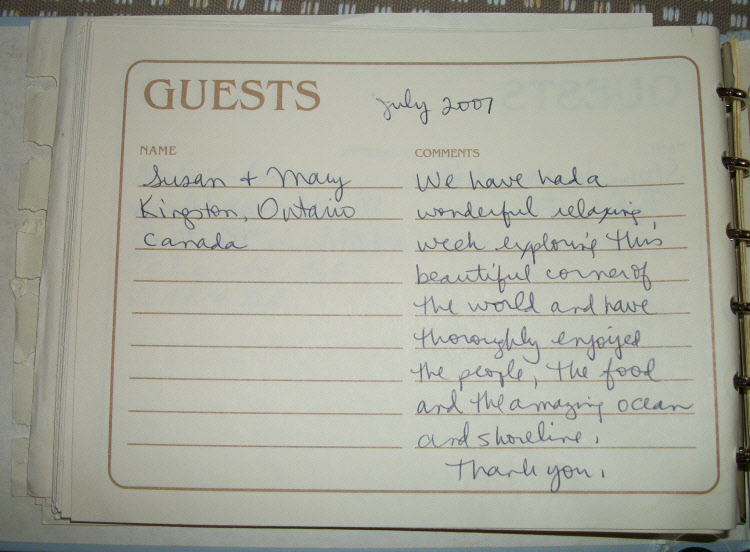 GUESTS
July 2007
NAME
Susan + Mary
Kingston, Ontario
Canada
COMMENTS
We have had a
wonderful relaxing,
week exploring this
beautiful corner of
the world and have
thoroughly enjoyed
the people, the food
and the amazing ocean
and shoreline.
Thank you.